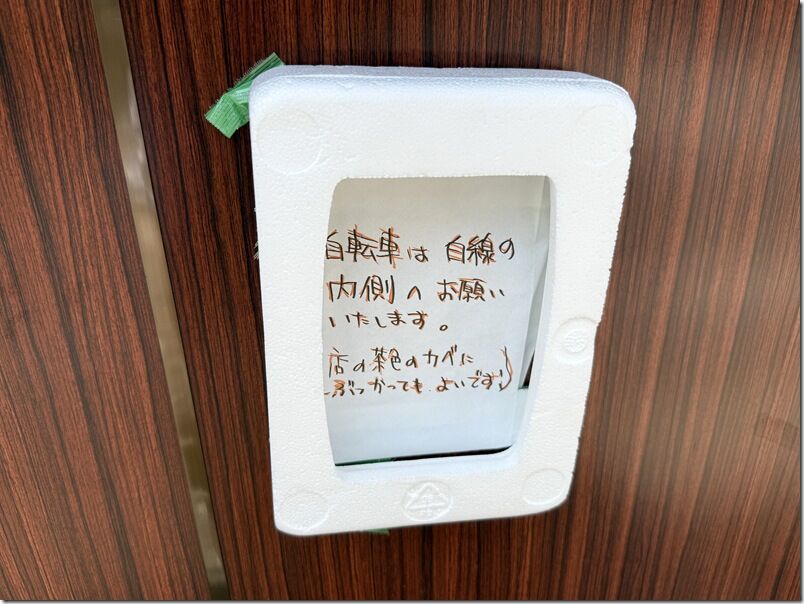 自転車は 白線の
内側へ お願い
いたします。
店の茶色のカベに
ぶつかっても よいです。)